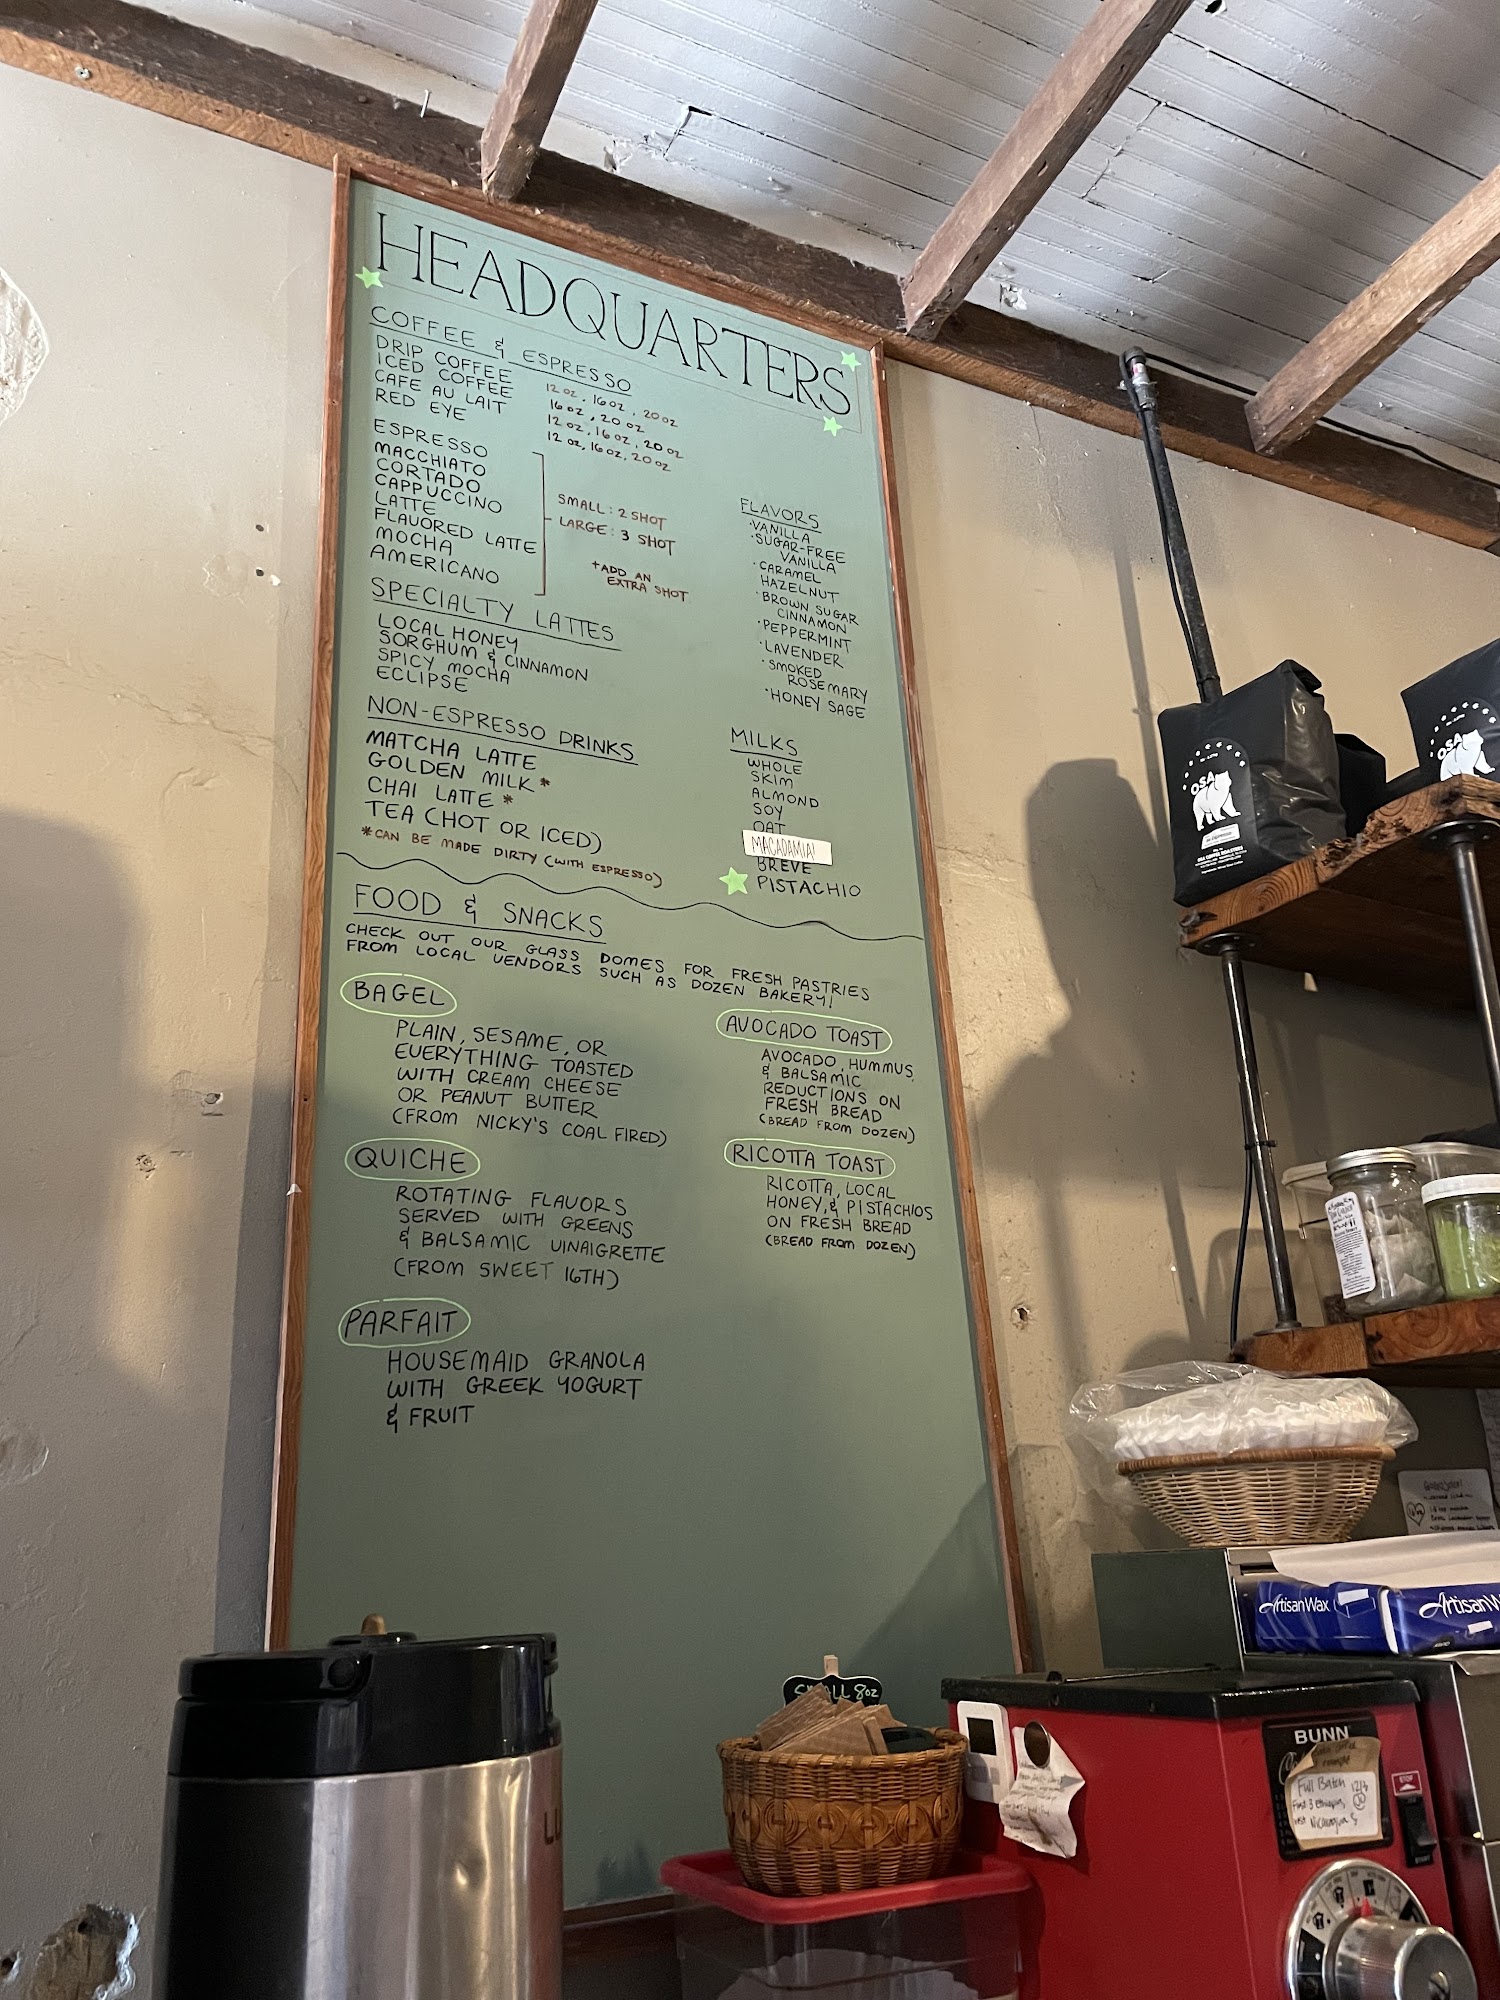 HEADQUARTERS
COFFEE & ESPRESSO
DRIP COFFEE 12 oz, 16 oz, 20 oz
ICED COFFEE 16 oz, 20 oz
CAFE AU LAIT 12 oz, 16 oz, 20 oz
RED EYE 12 oz, 16 oz, 20 oz
ESPRESSO
MACCHIATO
CORTADO
CAPPUCCINO
LATTE
FLAVORED LATTE
MOCHA
AMERICANO
SMALL: 2 SHOT
LARGE: 3 SHOT
+ADD AN
EXTRA SHOT
SPECIALTY LATTES
LOCAL HONEY
SORGHUM & CINNAMON
SPICY MOCHA
ECLIPSE
NON-ESPRESSO DRINKS
MATCHA LATTE
GOLDEN MILK *
CHAI LATTE *
TEA (HOT OR ICED)
*CAN BE MADE DIRTY (WITH ESPRESSO)
FLAVORS
·VANILLA
·SUGAR-FREE
VANILLA
·CARAMEL
HAZELNUT
·BROWN SUGAR
CINNAMON
·PEPPERMINT
·LAVENDER
·SMOKED
ROSEMARY
·HONEY SAGE
MILKS
WHOLE
SKIM
ALMOND
SOY
OAT
MACADAMIA!
BREVE
PISTACHIO
FOOD & SNACKS
CHECK OUT OUR GLASS DOMES FOR FRESH PASTRIES
FROM LOCAL VENDORS SUCH AS DOZEN BAKERY!
BAGEL
PLAIN, SESAME, OR
EVERYTHING TOASTED
WITH CREAM CHEESE
OR PEANUT BUTTER
(FROM NICKY'S COAL FIRED)
QUICHE
ROTATING FLAVORS
SERVED WITH GREENS
& BALSAMIC VINAIGRETTE
(FROM SWEET 16TH)
PARFAIT
HOUSEMAID GRANOLA
WITH GREEK YOGURT
& FRUIT
AVOCADO TOAST
AVOCADO, HUMMUS,
& BALSAMIC
REDUCTIONS ON
FRESH BREAD
(BREAD FROM DOZEN)
RICOTTA TOAST
RICOTTA, LOCAL
HONEY, & PISTACHIOS
ON FRESH BREAD
(BREAD FROM DOZEN)
OSA
OSA COFFEE ROASTERS
OSA
ArtisanWax
ArtisanW
SMALL 8oz
BUNN
Full Batch 12/3
First 3 Ethiopia
Nicaragua 5
STOP
START